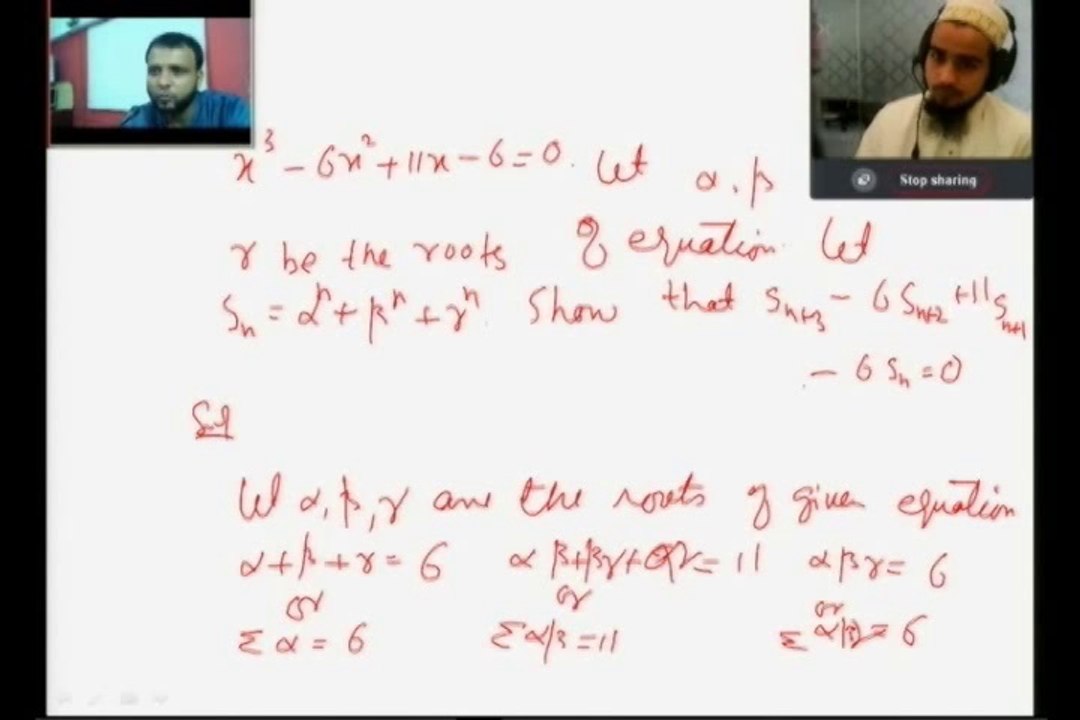 x³ - 6x² + 11x - 6 = 0. Let α, β
γ be the roots of equation. Let
Sₙ = αⁿ + βⁿ + γⁿ. Show that Sₙ₊₃ - 6Sₙ₊₂ + 11Sₙ₊₁
- 6Sₙ = 0
Sol
Let α, β, γ are the roots of given equation
α + β + γ = 6 αβ + βγ + αγ = 11 αβγ = 6
or or or
Σα = 6 Σαβ = 11 Σαβγ = 6
Stop sharing